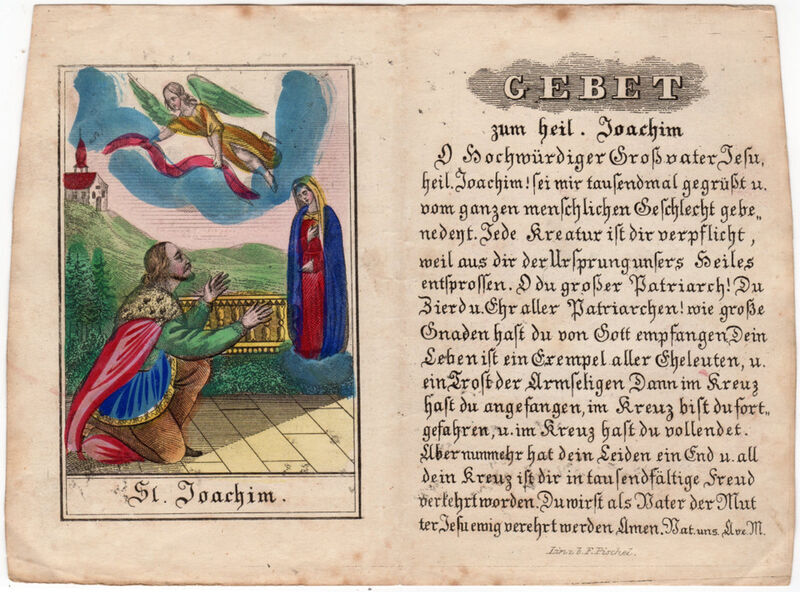 St. Joachim.
GEBET
zum heil. Joachim
O Hochwürdiger Großvater Jesu,
heil. Joachim! sei mir tausendmal gegrüßt u.
vom ganzen menschlichen Geschlecht gebe„
nedeyt. Jede Kreatur ist dir verpflicht,
weil aus dir der Ursprung unsers Heiles
entsprossen. O du großer Patriarch! Du
Zierd u. Ehr aller Patriarchen! wie große
Gnaden hast du von Gott empfangen Dein
Leben ist ein Exempel aller Eheleuten, u.
ein Trost der Armseligen Dann im Kreuz
hast du angefangen, im Kreuz bist du fort„
gefahren, u. im Kreuz hast du vollendet.
Aber nunmehr hat dein Leiden ein End u. all
dein Kreuz ist dir in tausendfältige Freud
verkehrt worden. Du wirst als Vater der Mut
ter Jesu ewig verehrt werden Amen. Vat. uns. Ave M.
Linz b. F. Pischel.